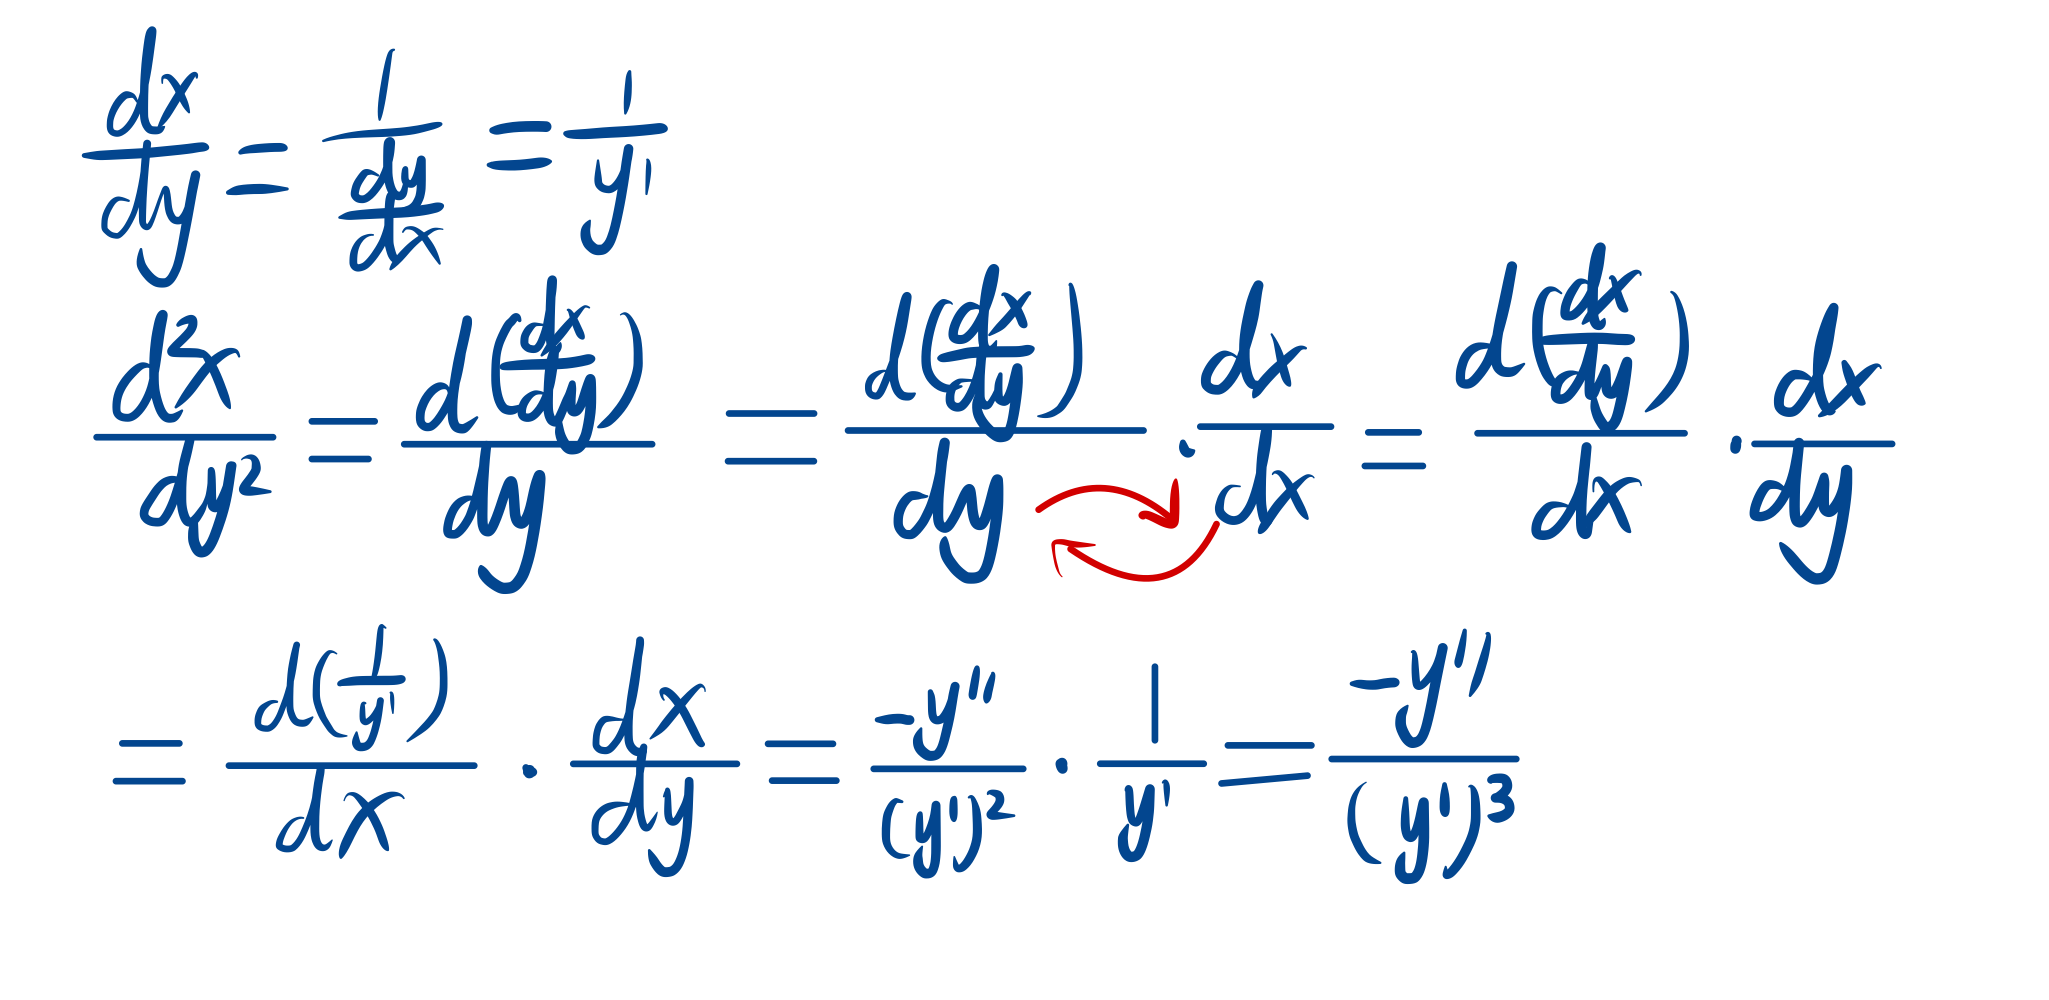 $\frac{dx}{dy} = \frac{1}{\frac{dy}{dx}} = \frac{1}{y'}$
$\frac{d^2x}{dy^2} = \frac{d\left(\frac{dx}{dy}\right)}{dy} = \frac{d\left(\frac{dx}{dy}\right)}{dy} \cdot \frac{dx}{dx} = \frac{d\left(\frac{dx}{dy}\right)}{dx} \cdot \frac{dx}{dy}$
$= \frac{d\left(\frac{1}{y'}\right)}{dx} \cdot \frac{dx}{dy} = \frac{-y''}{(y')^2} \cdot \frac{1}{y'} = \frac{-y''}{(y')^3}$